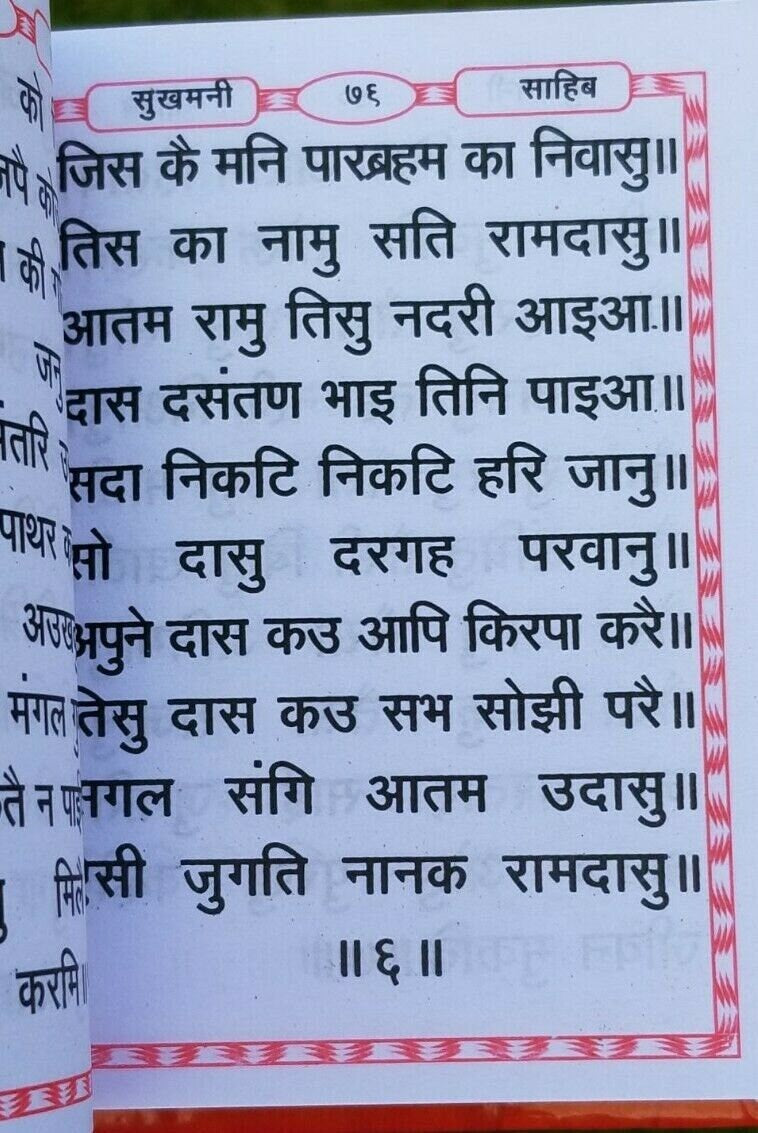 को
जपै
की
जनु
पाथर
मंगल
तै न
मिलै
करमि॥
सुखमनी ७६ साहिब
जिस कै मनि पारब्रहम का निवासु॥
तिस का नामु सति रामदासु॥
आतम रामु तिसु नदरी आइआ॥
दास दसंतण भाइ तिनि पाइआ॥
सदा निकटि निकटि हरि जानु॥
सो दासु दरगह परवानु॥
अपुने दास कउ आपि किरपा करै॥
तिसु दास कउ सभ सोझी परै॥
सगल संगि आतम उदासु॥
ऐसी जुगति नानक रामदासु॥
॥६॥